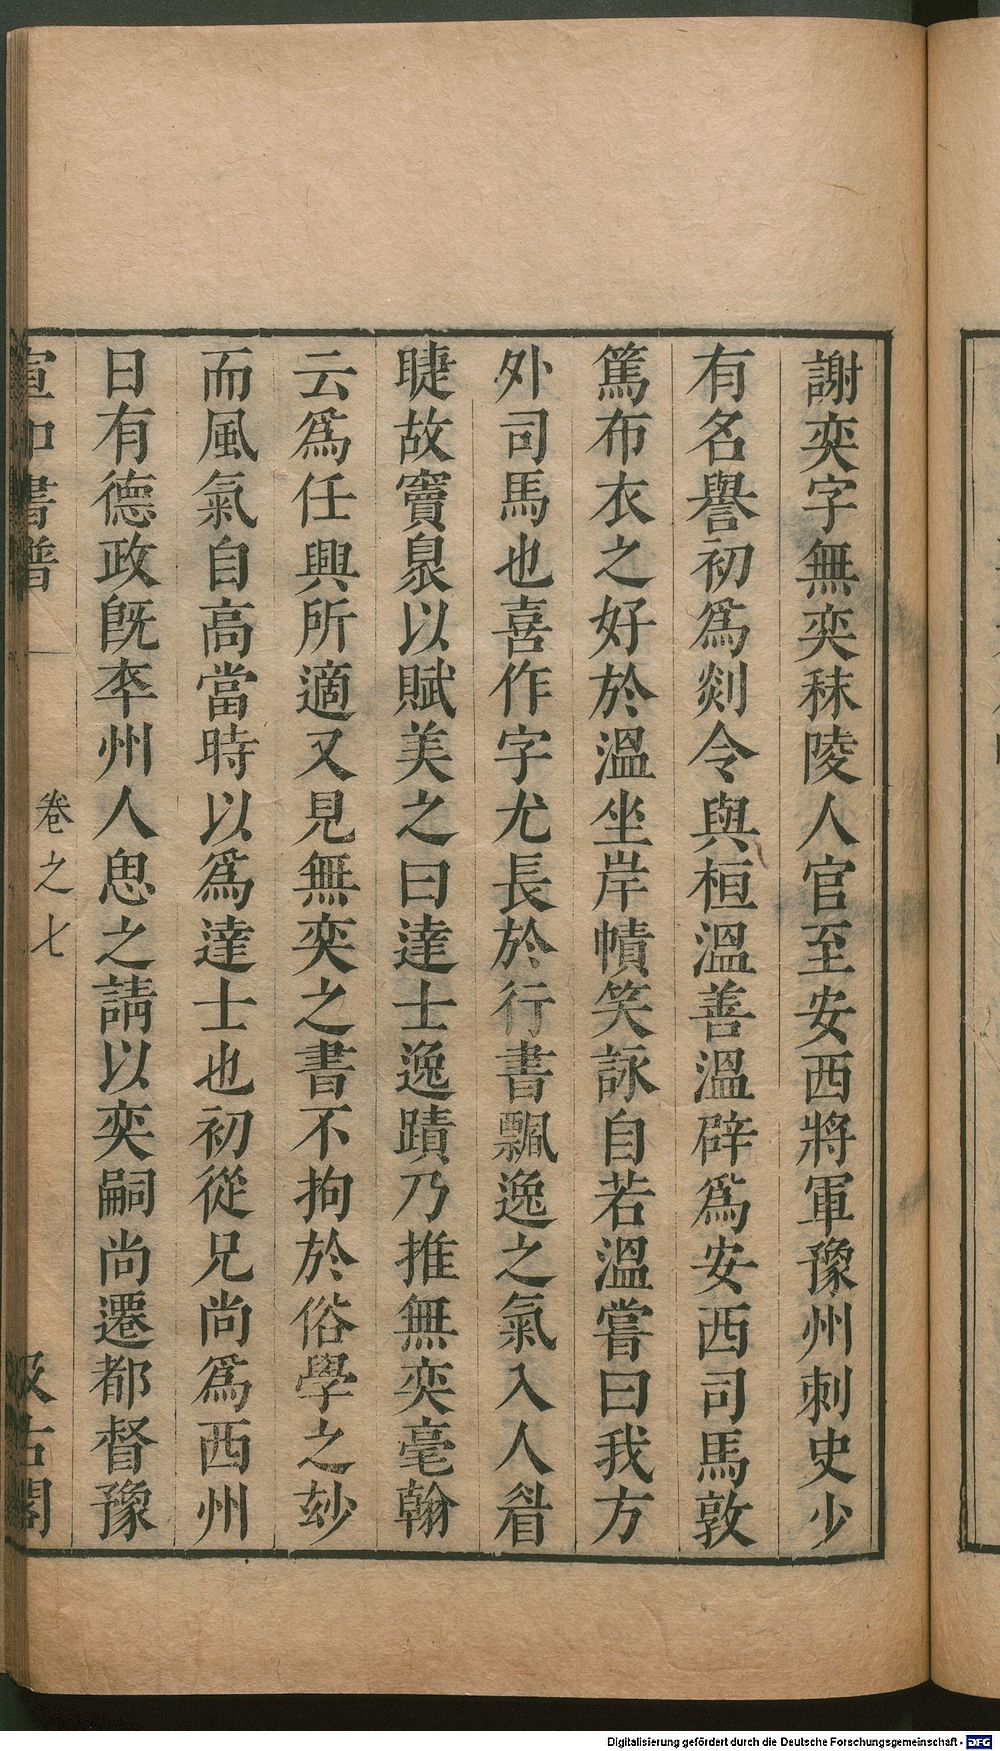 謝奕字無奕秣陵人官至安西將軍豫州刺史少
有名譽初爲剡令與桓溫善溫辟爲安西司馬敦
篤布衣之好於溫坐岸幘笑詠自若溫嘗曰我方
外司馬也喜作字尤長於行書飄逸之氣入人眉
睫故竇泉以賦美之曰達士逸蹟乃推無奕毫翰
云爲任興所適又見無奕之書不拘於俗學之玅
而風氣自高當時以爲達士也初從兄尚爲西州
日有德政旣卒州人思之請以奕嗣尚遷都督豫
宣和書譜 卷之七 汲古閣
Digitalisierung gefördert durch die Deutsche Forschungsgemeinschaft - DFG